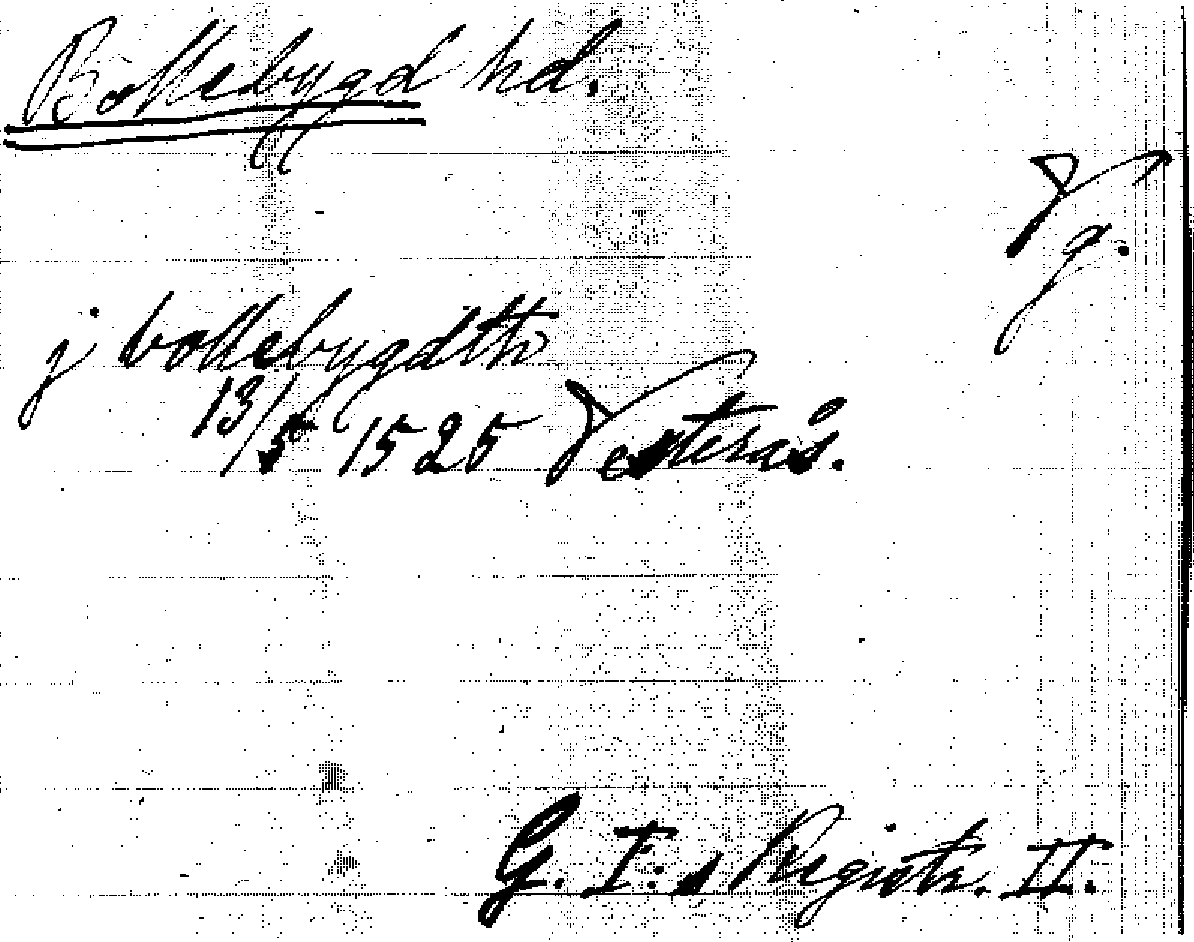 Bollebygd hd.
Vg.
j bollebygdth
13/5 1525 Vesterås.
G. I:s Registr. II.